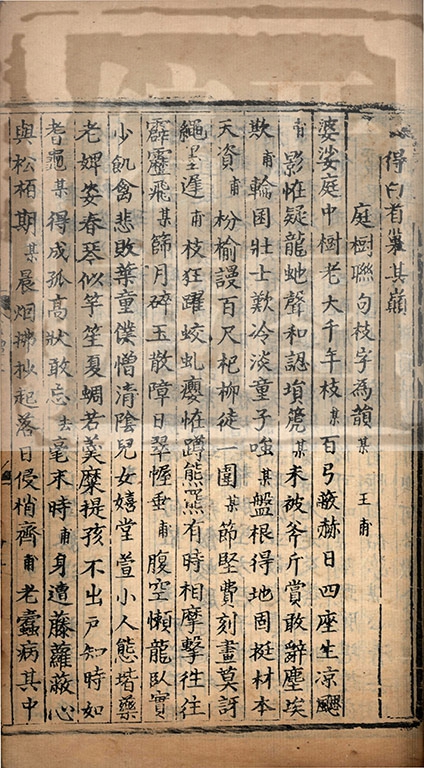 得白者蒙其巔
庭樹聯句枝字為韻某 王甫
婆娑庭中樹老大千年枝某百弓蔽赫日四座生凉颸
甫影恠疑龍虵聲和認塤篪某未被斧斤賞敢辭塵埃
欺甫輪囷壯士歎冷淡童子嗤某盤根得地固挺材本
天資甫枌榆謾百尺杞柳徒一圍某節堅費刻畫莫訝
繩墨遲甫枝狂躍蛟虬癭恠蹲熊羆有時相摩擊徃徃
霹靂飛某篩月碎玉散障日翠幄垂甫腹空懶龍臥實
少飢禽悲敗葉童僕憎清陰兒女嬉堂萱小人態堦藥
老婢姿春琴似竽笙夏蜩若羹糜提孩不出戶知時如
耆龜某得成孤高狀敢忘去毫末時甫身遭藤蘿蔽心
與松栢期某晨烟拂袂起落日侵梢齊甫老蠹病其中